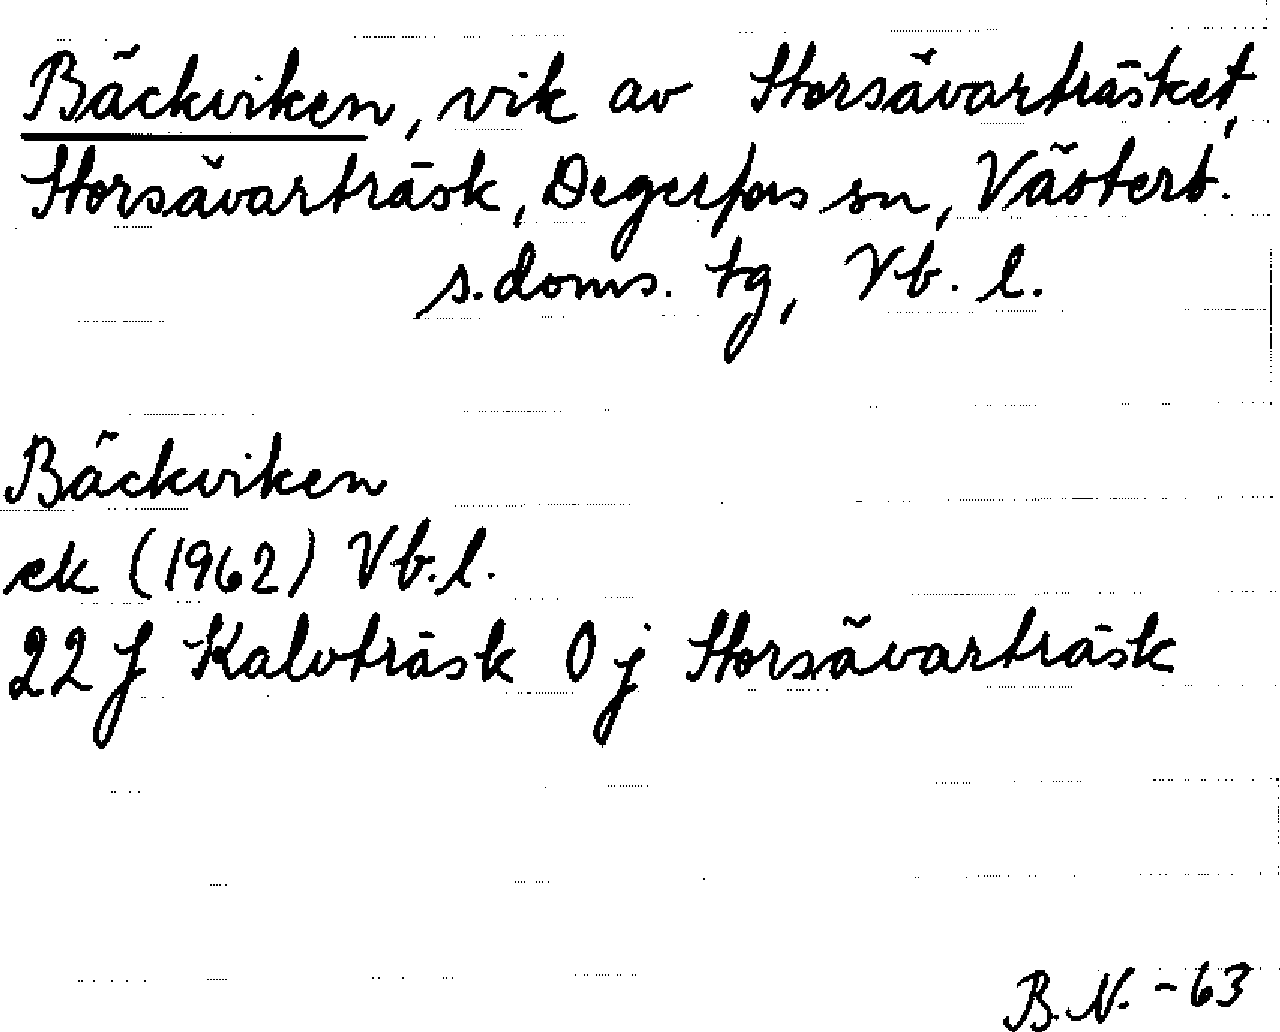 Bäckviken, vik av Storsävarträsket,
Storsävarträsk, Degerfors sn, Västerb.
s. doms. tg, Vb. l.
Bäckviken
ek (1962) Vb. l.
22 J Kalvträsk 0 j Storsävarträsk
B. N. - 63